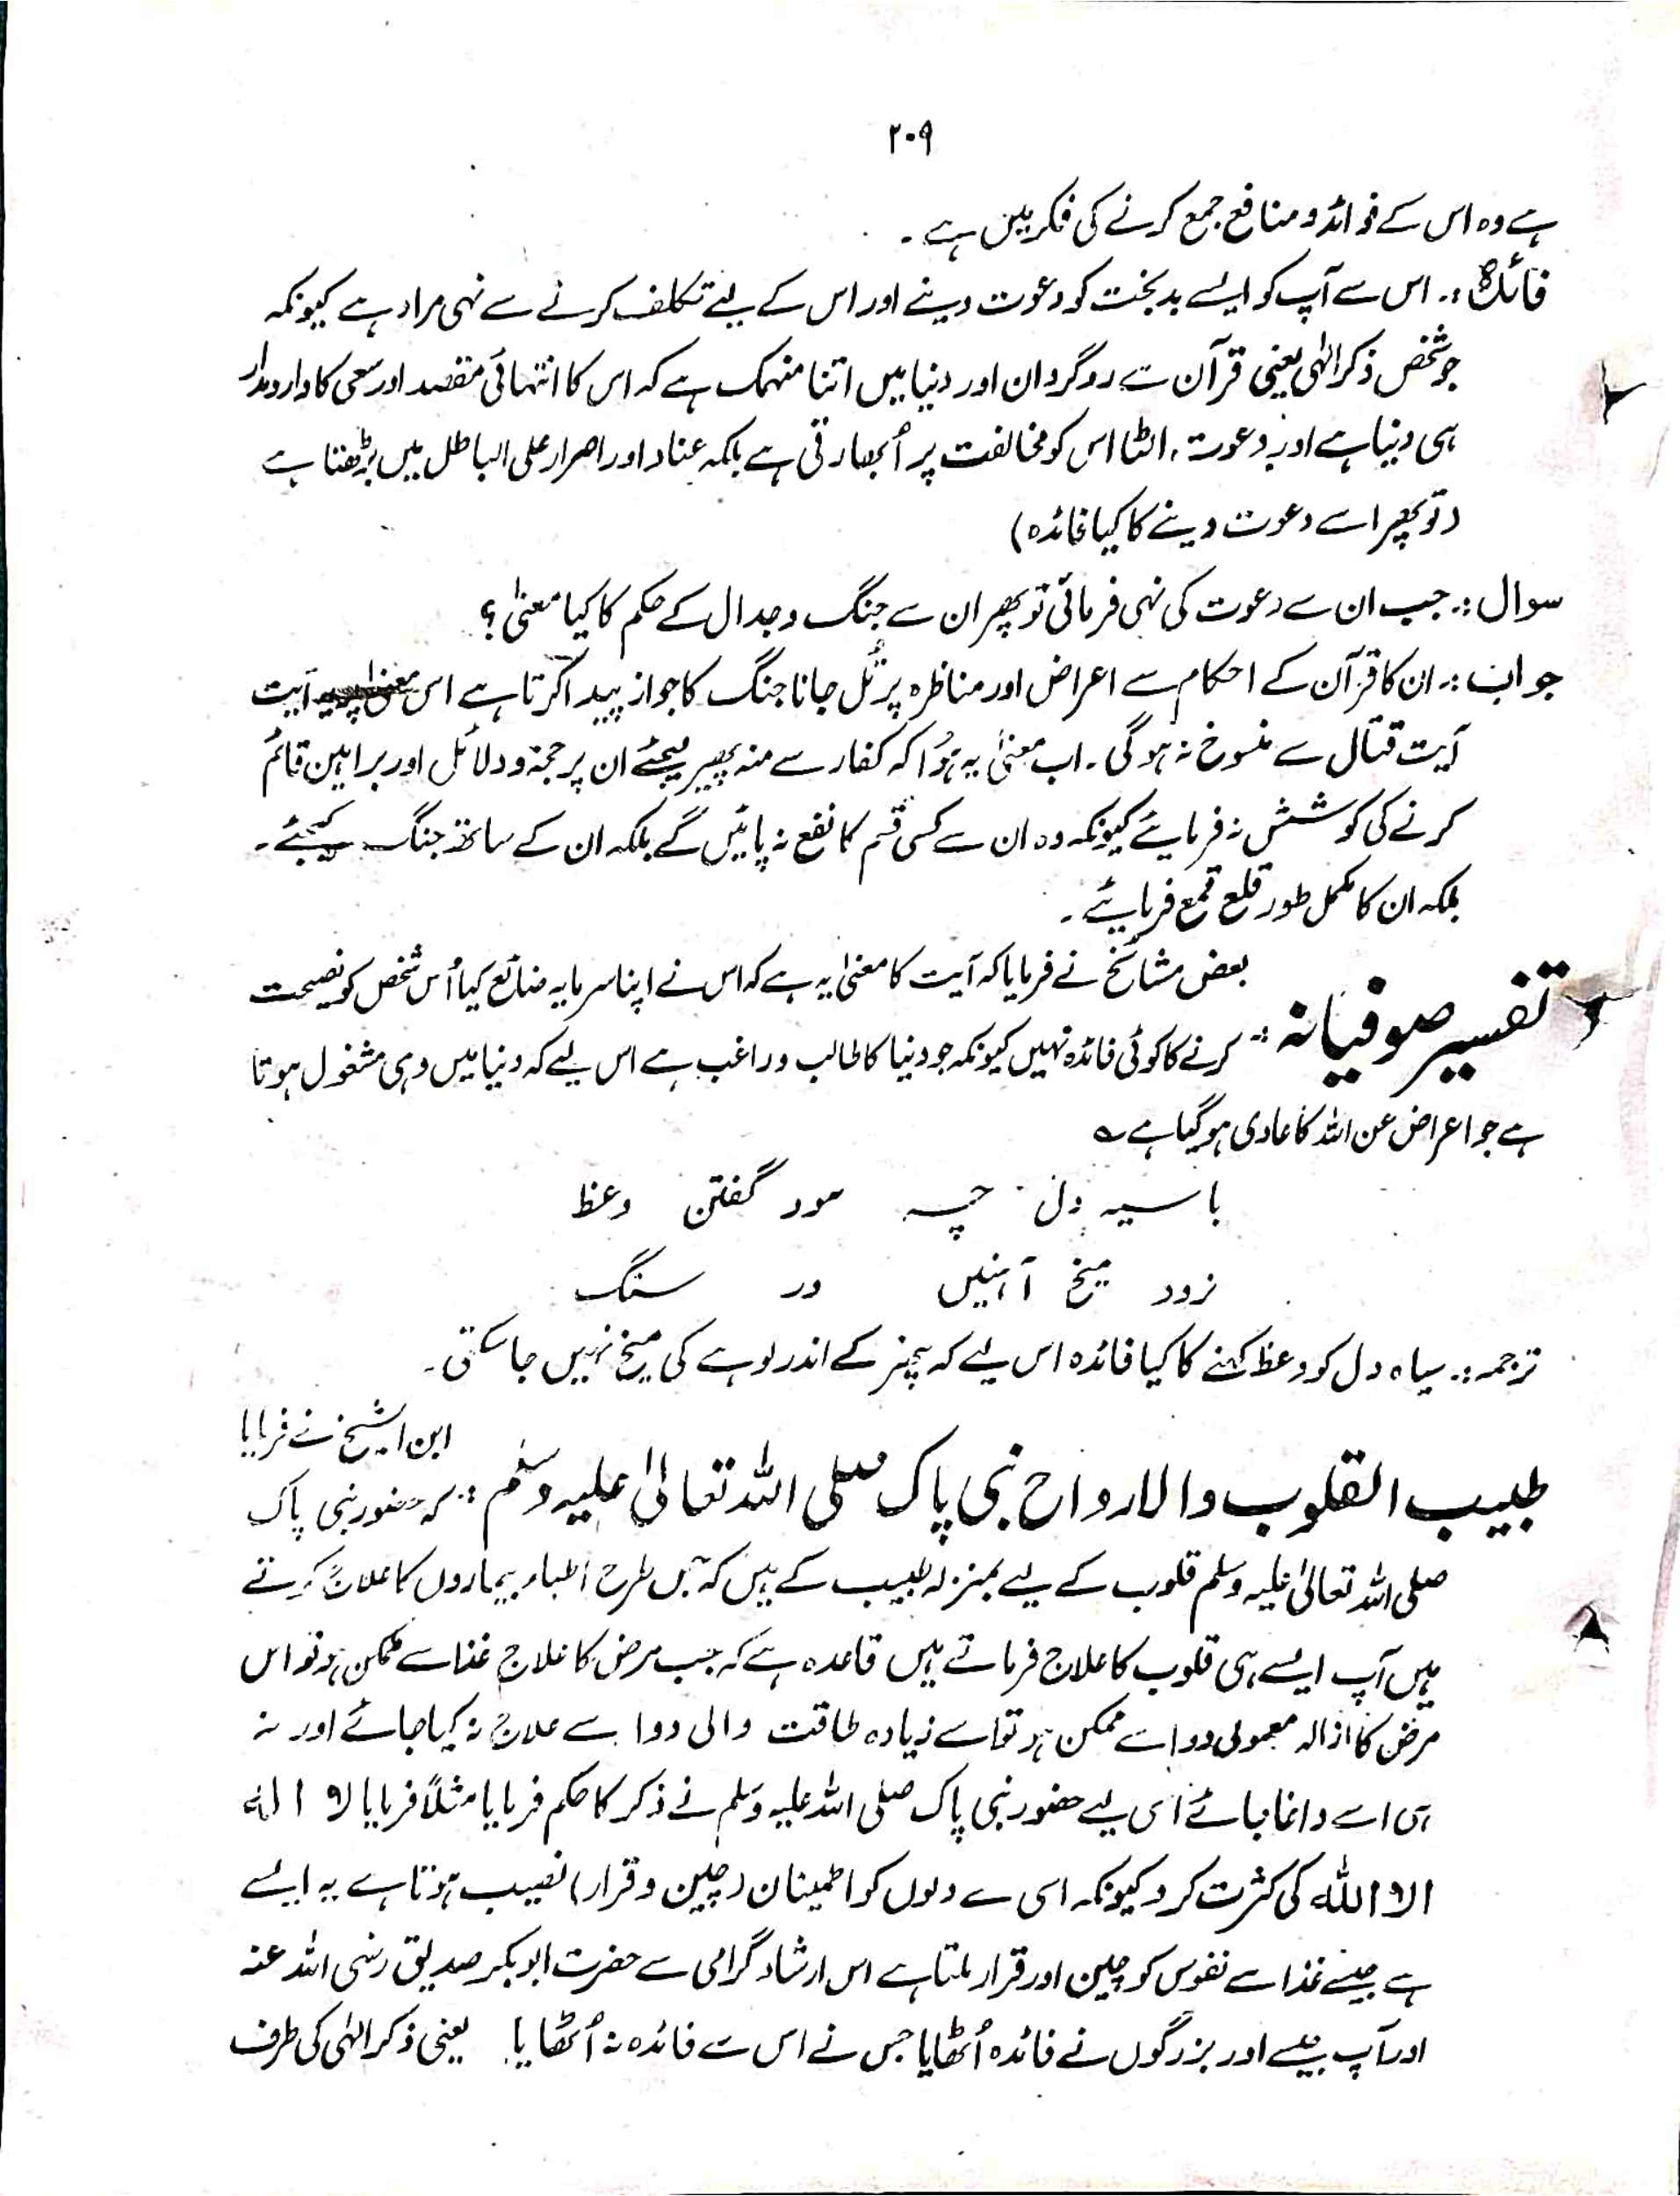 ۲۰۹
ہے وہ اس کے فوائد و منافع جمع کرنے کی فکر میں ہے ۔
فائدہ :۔ اس سے آپ کو ایسے بدبخت کو دعوت دینے اور اس کے لیے تکلف کرنے سے نہی مراد ہے کیونکہ
جو شخص ذکر الٰہی یعنی قرآن سے روگردان اور دنیا میں اتنا منہمک ہے کہ اس کا انتہائی مقصد اور سعی کا دارومدار
ہی دنیا ہے اور یہ دعوت ، الٹا اس کو مخالفت پر اُبھارتی ہے بلکہ عناد اور اصرار علی الباطل میں بڑھتا ہے
(تو پھر اسے دعوت دینے کا کیا فائدہ)
سوال :۔ جب ان سے دعوت کی نہی فرمائی تو پھر ان سے جنگ و جدال کے حکم کا کیا معنیٰ ؟
جواب :۔ ان کا قرآن کے احکام سے اعراض اور مناظرہ پر تُل جانا جنگ کا جواز پیدا کرتا ہے اس آیت
آیت قتال سے منسوخ نہ ہو گی ۔ اب معنیٰ یہ ہُوا کہ کفار سے منہ پھیر لیجئے ان پر حجۃ و دلائل اور براہین قائم
کرنے کی کوشش نہ فرمائیے کیونکہ وہ ان سے کسی قسم کا نفع نہ پائیں گے بلکہ ان کے ساتھ جنگ کیجئے ۔
بلکہ ان کا مکمل طور قلع قمع فرمایئے ۔
بعض مشائخ نے فرمایا کہ آیت کا معنیٰ یہ ہے کہ اس نے اپنا سرمایہ ضائع کیا اُس شخص کو نصیحت
تفسیر صوفیانہ :۔ کرنے کا کوئی فائدہ نہیں کیونکہ جو دنیا کا طالب و راغب ہے اس لیے کہ دنیا میں وہی مشغول ہوتا
ہے جو اعراض عن اللہ کا عادی ہو گیا ہے ؎
با سیہ دل چہ سود گفتن وعظ
نرود میخ آہنیں در سنگ
ترجمہ :۔ سیاہ دل کو وعظ کہنے کا کیا فائدہ اس لیے کہ پتھر کے اندر لوہے کی میخ نہیں جا سکتی ۔
ابن الشیخ نے فرمایا
طبیب القلوب والارواح نبی پاک صلی اللہ تعالیٰ علیہ وسلم :۔ کہ حضور نبی پاک
صلی اللہ تعالیٰ علیہ وسلم قلوب کے لیے بمنزلہ طبیب کے ہیں کہ جس طرح اطباء بیماروں کا علاج کرتے
ہیں آپ ایسے ہی قلوب کا علاج فرماتے ہیں قاعدہ ہے کہ جب مرض کا علاج غذا سے ممکن ہو تو اس
مرض کا ازالہ معمولی دوا سے ممکن ہو تو اسے زیادہ طاقت والی دوا سے علاج نہ کیا جائے اور نہ
ہی اسے داغا جائے اسی لیے حضور نبی پاک صلی اللہ علیہ وسلم نے ذکر کا حکم فرمایا مثلاً فرمایا لا الٰہ
الا اللہ کی کثرت کرو کیونکہ اسی سے دلوں کو اطمینان (چین و قرار) نصیب ہوتا ہے یہ ایسے
ہے جیسے غذا سے نفوس کو چین اور قرار ملتا ہے اس ارشاد گرامی سے حضرت ابوبکر صدیق رضی اللہ عنہ
اور آپ جیسے اور بزرگوں نے فائدہ اُٹھایا جس نے اس سے فائدہ نہ اُٹھایا یعنی ذکر الٰہی کی طرف